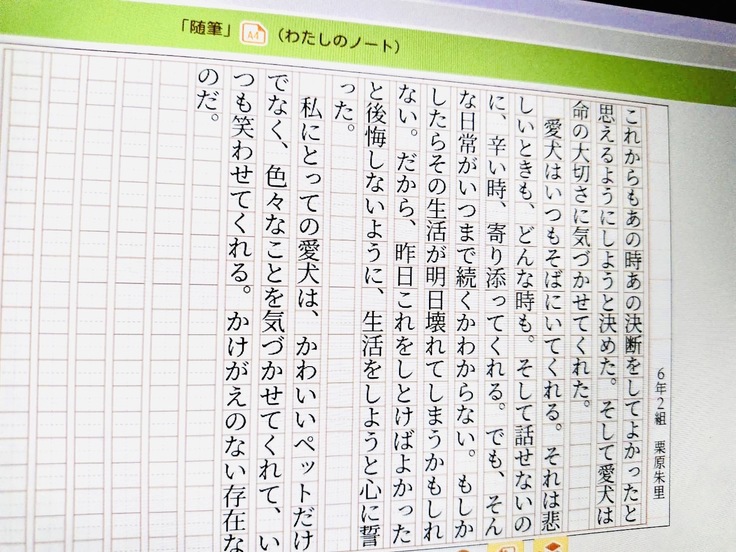 「随筆」 A4 （わたしのノート）
6年2組　栗原朱里
これからもあの時あの決断をしてよかったと
思えるようにしようと決めた。そして愛犬は
命の大切さに気づかせてくれた。
　愛犬はいつもそばにいてくれる。それは悲
しいときも、どんな時も。そして話せないの
に、辛い時、寄り添ってくれる。でも、そん
な日常がいつまで続くかわからない。もしか
したらその生活が明日壊れてしまうかもしれ
ない。だから、昨日これをしとけばよかった
と後悔しないように、生活をしようと心に誓
った。
　私にとっての愛犬は、かわいいペットだけ
でなく、色々なことを気づかせてくれて、い
つも笑わせてくれる。かけがえのない存在な
のだ。